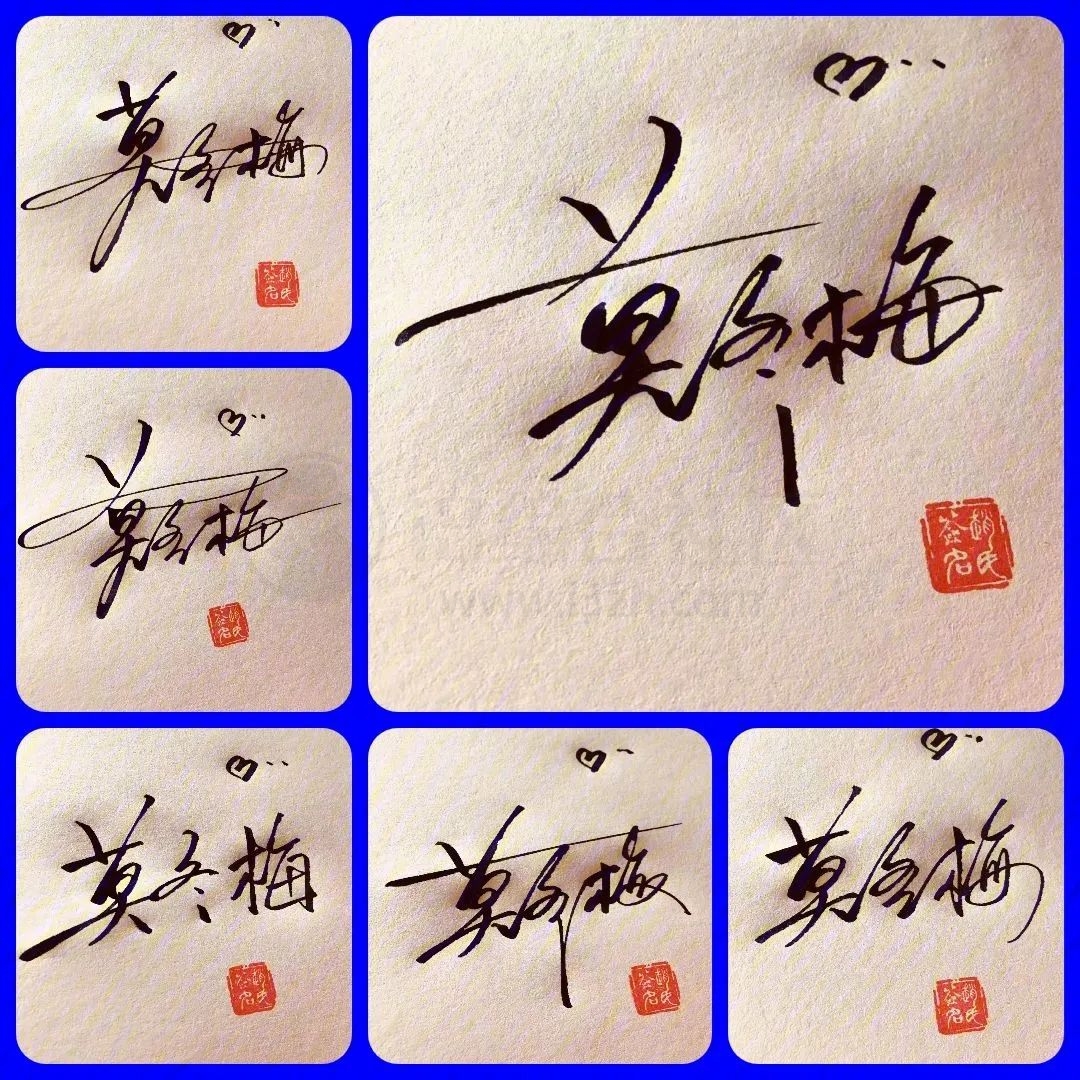 莫冬梅
赵氏签名
莫冬梅
莫冬梅
赵氏签名
赵氏签名
莫冬梅
赵氏签名
莫冬梅
赵氏签名
莫冬梅
赵氏签名